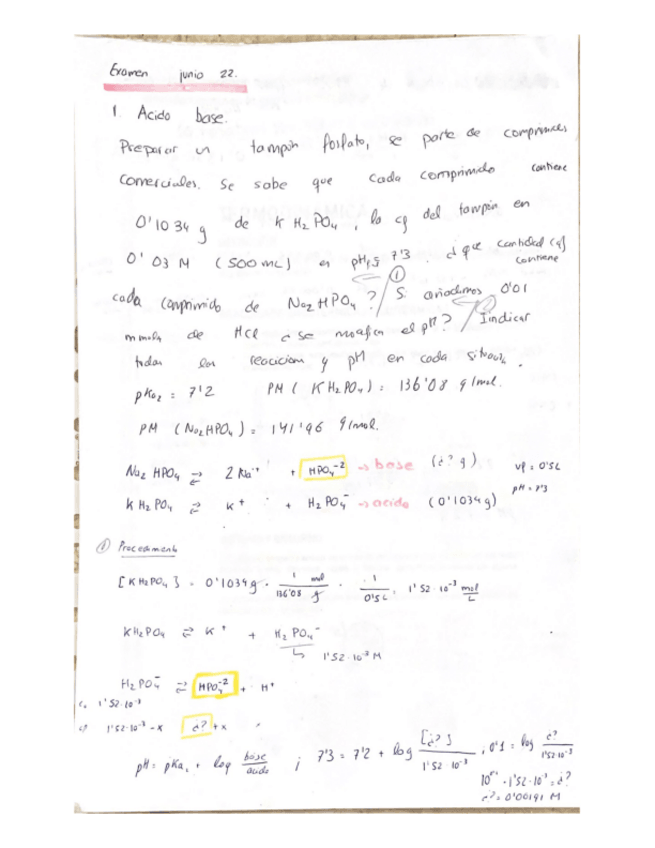 Examen junio 22.
1. Acido base.
Preparar un tampón fosfato, se parte de comprimidos
comerciales. Se sabe que cada comprimido contiene
0'1034 g de KH2PO4, la cg del tampón en
0'03 M (500 mL) en pH 7'3 ¿que cantidad (g) contiene
cada comprimido de Na2HPO4? / Si añadimos 0'01
mmols de HCl ¿se modifica el pH? / Indicar
todas las y pH en cada
pKa2 = 7'2 PM (KH2PO4) = 136'08 g/mol.
PM (Na2HPO4) = 141'96 g/mol.
Na2HPO4 ⇄ 2 Na+ + HPO4-2 → base (¿? g) vf = 0'5L
KH2PO4 ⇄ K+ + H2PO4- → acido (0'1034g) pH = 7'3
① Procedimiento
[KH2PO4] = 0'1034g · 1 mol / 136'08 g · 1 / 0'5L = 1'52·10-3 mol/L
KH2PO4 ⇄ K+ + H2PO4-
↳ 1'52·10-3 M
H2PO4- ⇄ HPO4-2 + H+
1'52·10-3
1'52·10-3 - x ¿? + x x
pH = pKa + log base/acido ; 7'3 = 7'2 + log [¿?] / 1'52·10-3 ; 0'1 = log ¿? / 1'52·10-3
10^0'1 · 1'52·10-3 = ¿?
¿? = 0'00191 M